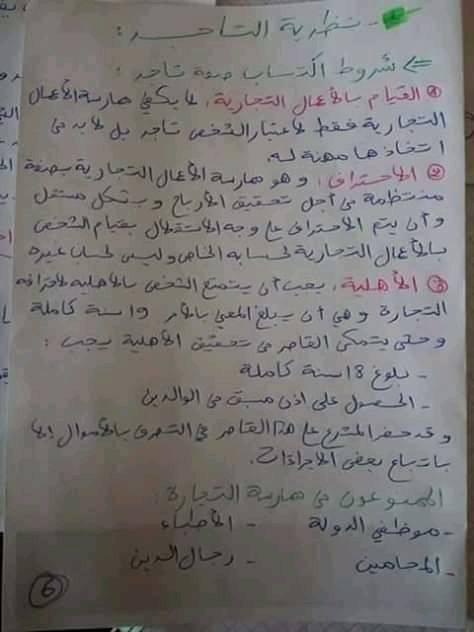 - نظرية التاجر :
<= شروط اكتساب صفة تاجر :
① القيام بالأعمال التجارية : لا يكفي ممارسة الأعمال
التجارية فقط لاعتبار الشخص تاجر بل لابد من
اتخاذها مهنة له.
② الاحتراف : و هو ممارسة الأعمال التجارية بصفة
منتظمة من أجل تحقيق الأرباح و بشكل مستقل
و أن يتم الاحتراف على وجه الاستقلال بقيام الشخص
بالأعمال التجارية لحسابه الخاص وليس لحساب غيره
③ الأهلية : يجب أن يتمتع الشخص بالأهلية لاحترافه
التجارة و هي أن يبلغ المعني بالأمر 19 سنة كاملة
و حتى يتمكن القاصر من تحقيق الأهلية يجب :
- بلوغ 18 سنة كاملة
- الحصول على اذن مسبق من الوالدين
و قد حضر المشرع على هذا القاصر في التصرف بالأموال إلا
باتباع بعض الاجراءات.
الممنوعون من ممارسة التجارة :
- موظفي الدولة - الأطباء
- المحامين - رجال الدين
6